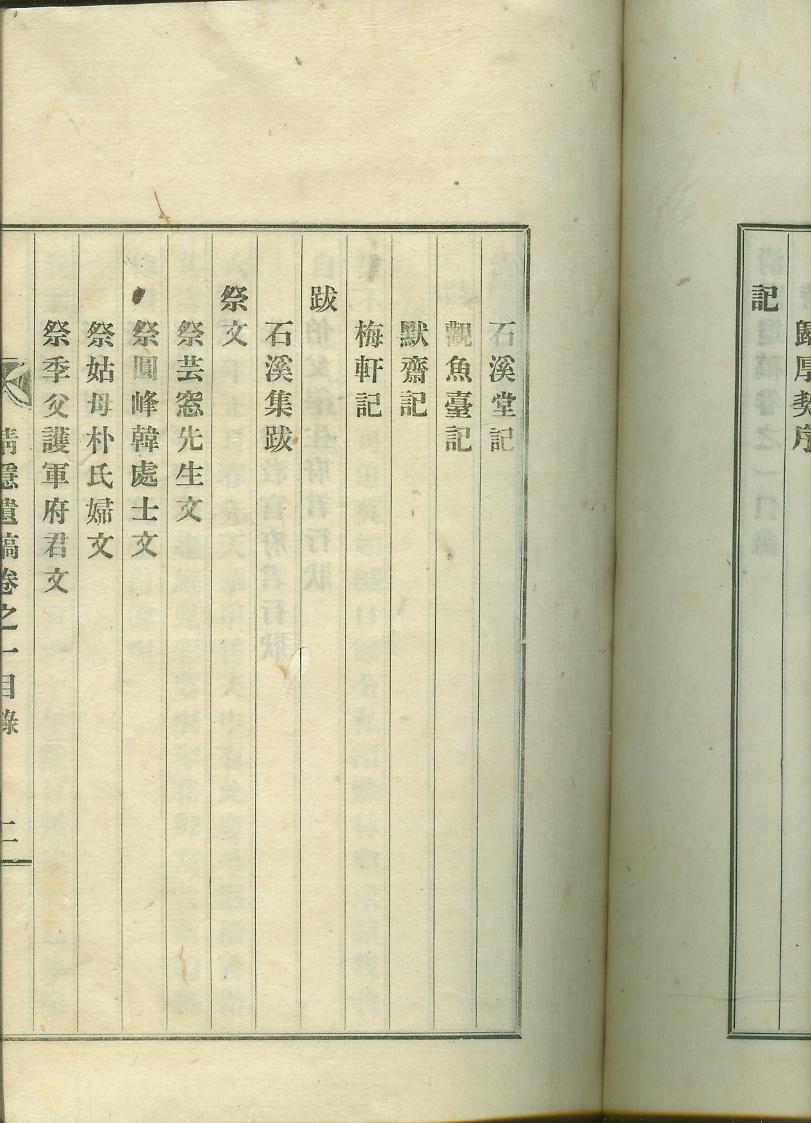 歸厚契序
記
石溪堂記
觀魚臺記
默齋記
梅軒記
跋
石溪集跋
祭文
祭芸窓先生文
祭圓峰韓處士文
祭姑母朴氏婦文
祭季父護軍府君文
隱遺稿卷之一目錄
二